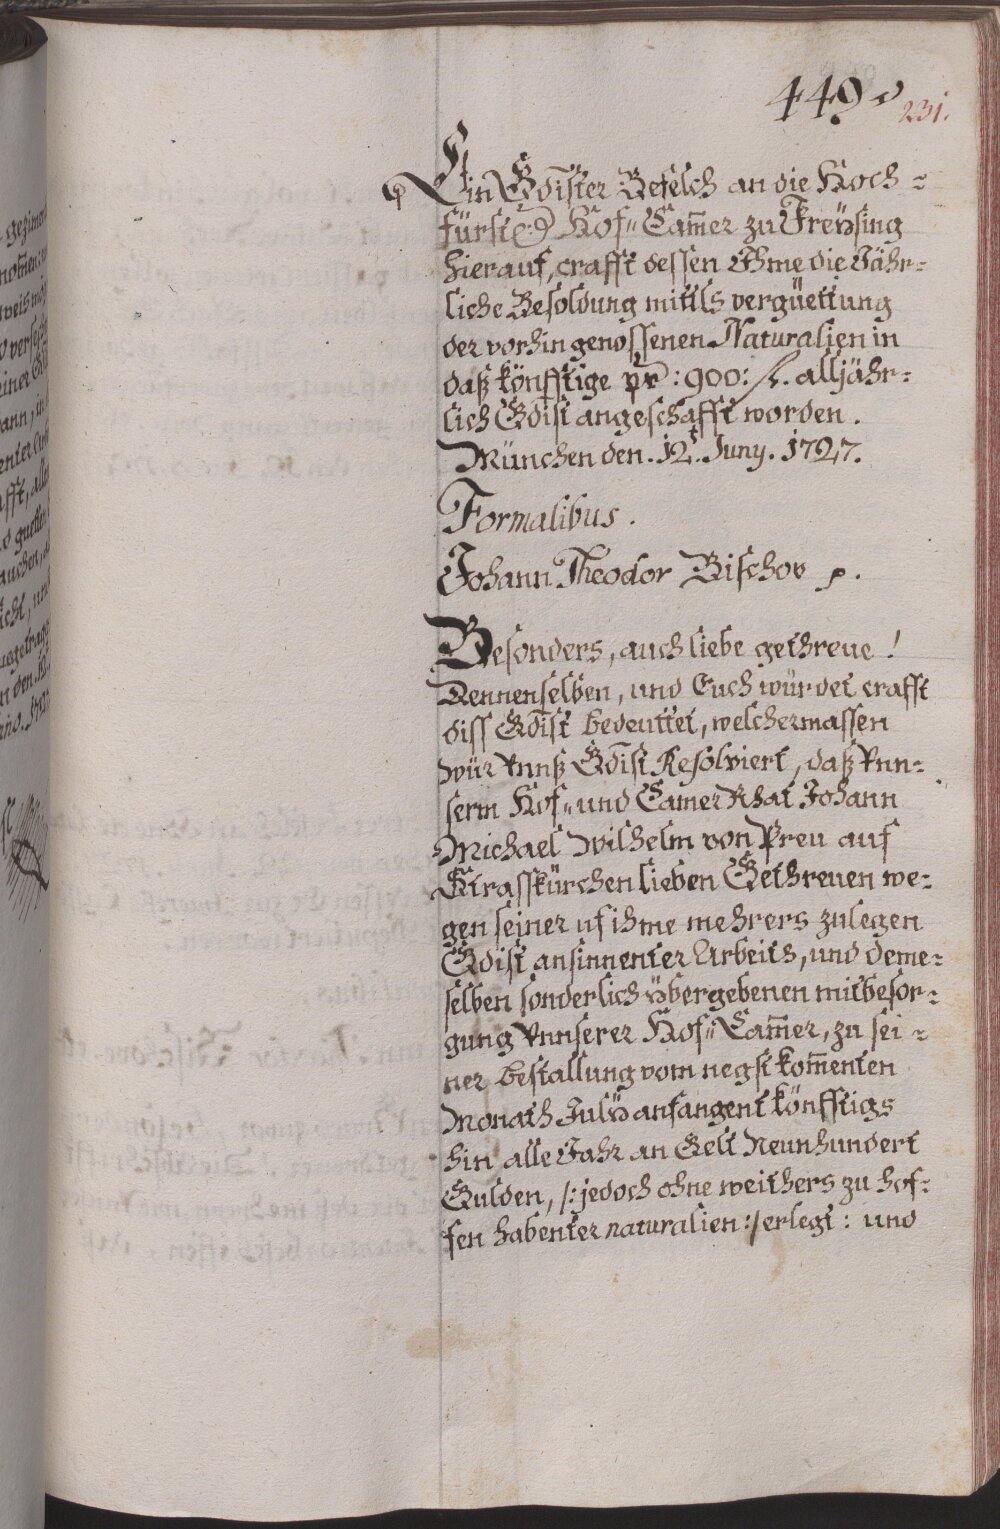 449
231.
Ein Gdister Befelch an die Hoch-
fürstl: Hof- Cam̄er zu Freÿsing
hierauf, crafft dessen Ihme die Jähr-
liche Besoldung mittls vergüettung
der vorhin genossenen Naturalien in
daß könfftige pr: 900: f. alljähr-
lich Gdist angeschafft worden.
München den. 12t. Juny. 1727.
Formalibus.
Johann Theodor Bischov p.
Besonders, auch liebe gethreue!
Dennenselben, und Euch würdet crafft
diss Gdist bedeuttet, welchermassen
wür Vnnß Gdist Resolviert, daß Vnn-
serm Hof- und Camer Rhat Johann
Michael Wilhelm von Preu auf
Strasskürchen lieben Gethreuen we-
gen seiner uf ihme mehrers zulegen
Gdist ansinnenter Arbeits, und deme-
selben sonderlich ÿbergebenen mitbesor-
gung Vnnserer Hof- Cam̄er, zu sei-
ner bestallung vom negst kom̄enten
Monath Julÿ anfangent könfftigs
hin alle Jahr an Gelt Neunhundert
Gulden, /: jedoch ohne weithers zu hof-
fen habenter naturalien :/ erlegt: und